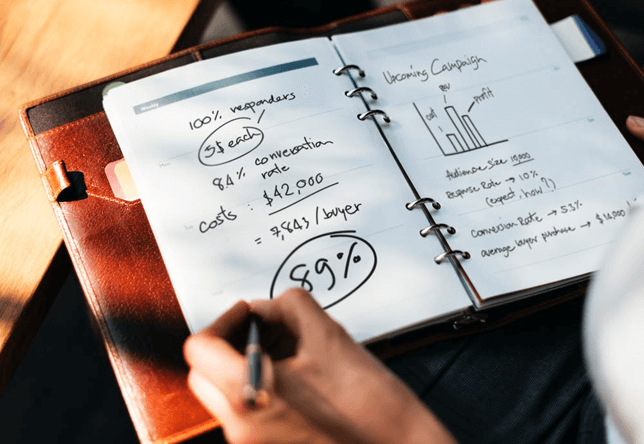 Weekly
100% responders
5$ each
8.4% conversation
rate
costs : $42,000
= 7,843/buyer
89%
Upcoming Campaign
cost
rev
Profit
Audience size 10,000
Response Rate → 10%
(expect; how?!)
conversion Rate → 53%
average buyer purchase → $14,000